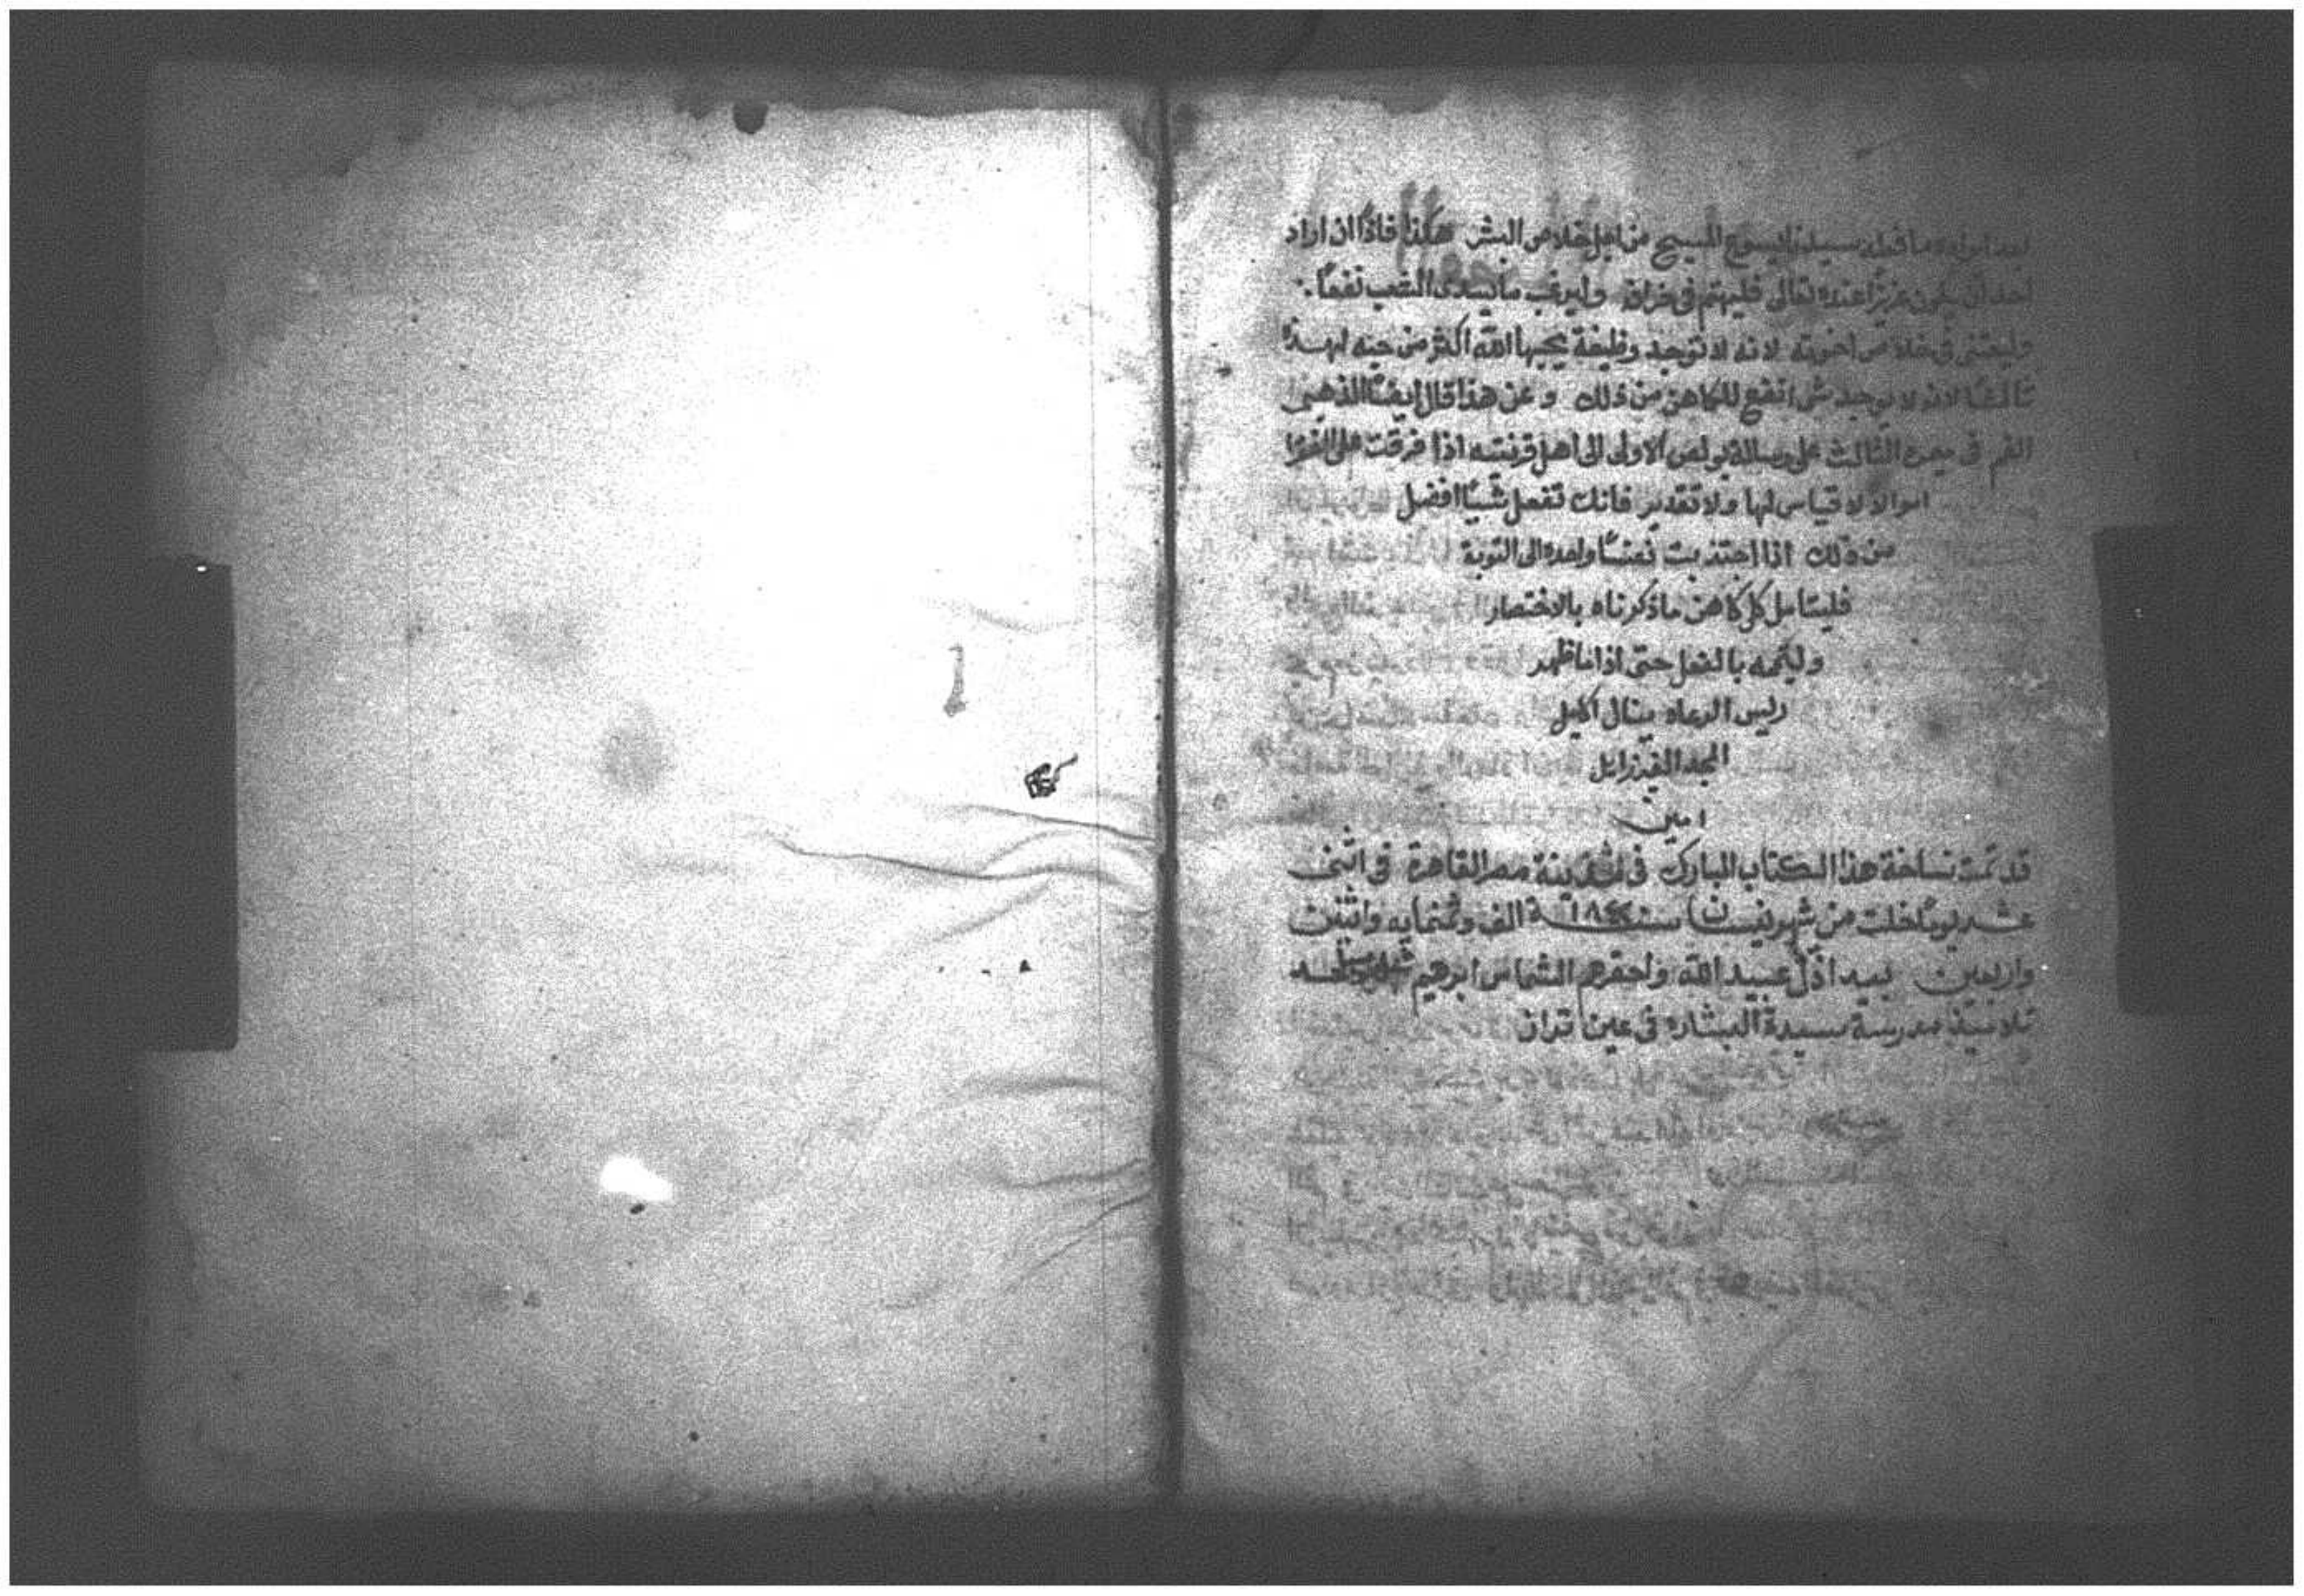 ما فعله سيدنا يسوع المسيح من اجل خلاص البشر هكذا فاذًا ان اراد
احد ان يكون عزيزًا عنده تعالى فليهتم في خرافه وليرغب ما ليسدى الشعب نفعًا.
وليعتنى في خلاص اخوته لانه لا توجد وظيفة يحبها الله اكثر من حبه لهذه
ثالثًا لانه لا يوجد شى انفع للكاهن من ذلك وعن هذا قال ايضًا الذهبى
الفم في ميمره الثالث على رسالة بولص الاولى الى اهل قرنتيه اذا فرقت على الفقرا
اموالاً لا قياس لها ولا تقدير فانك تفعل شيًا افضل
من ذلك اذا اجتذبت نفسًا واحدة الى التوبة
فليتامل كل كاهن ما ذكرناه بالاختصار
وليتمه بالفعل حتى اذا ما ظهر
ريس الرعاه ينال اكليل
المجد الغير زايل
امين
قد تمت نساخة هذا الكتاب المبارك في مدينة مصر القاهرة في اثنى
عشر يومًا خلت من شهر نيسان سنة ١٨٤٢ الف وثمنمايه واثنين
واربعين بيد اذل عبيد الله واحقرهم الشماس ابرهيم
تلاميذ مدرسة سيدة البشاره في عين تراز